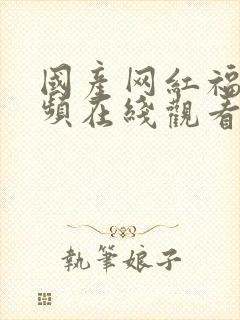 國產网紅福
頻在綫觀看
執筆娘子